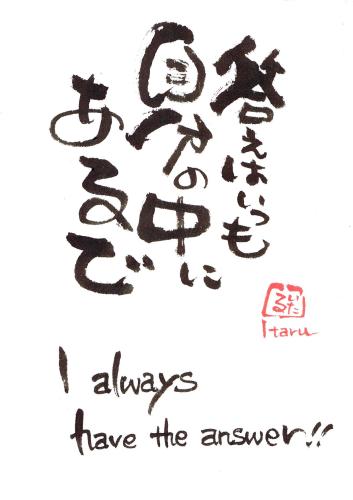 答えはいつも
自分の中に
あるで
いた
る
Itaru
I always
have the answer!!